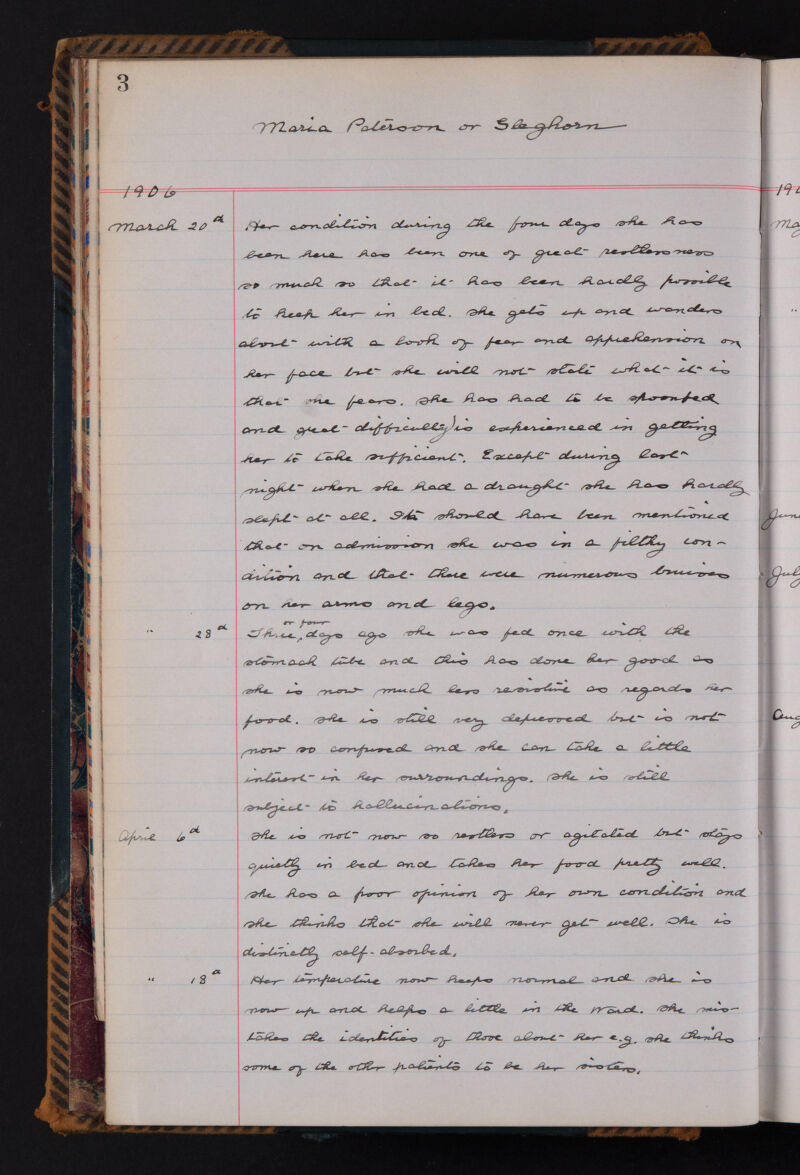 3
Maria Paterson or Gleghorn
1906
March 20d Her condition during the four days she has
been here has been one of great restlessness
so much so that it has been hardly possible
to keep her in bed. She gets up and wanders
about with a look of fear and apprehension on
her face but she will not state what it is
that she fears. She has had to be spoonfed
and great difficulty is experienced in getting
her to take sufficient. Except during last
night when she had a draught she has hardly
slept at all. It should have been mentioned
that on admission she was in a filthy con-
dition and that there were numerous bruises
on her arms and legs.
or four
" 28d Three, days ago she was fed once with the
stomach tube and this has done her good as
she is now much less resistive as regards her
food. She is still very depressed but is not
now so confused and she can take a little
interest in her surroundings. She is still
subject to hallucinations.
April 6d She is not now so restless or agitated but stays
quietly in bed and takes her food pretty well.
She has a poor opinion of her own condition and
she thinks that she will never get well. She is
distinctly self-absorbed.
" 18d Her temperature now keeps normal and she is
now up and helps a little in the Ward. She mis-
takes the identities of those about her e.g. she thinks
some of the other patients to be her sisters.